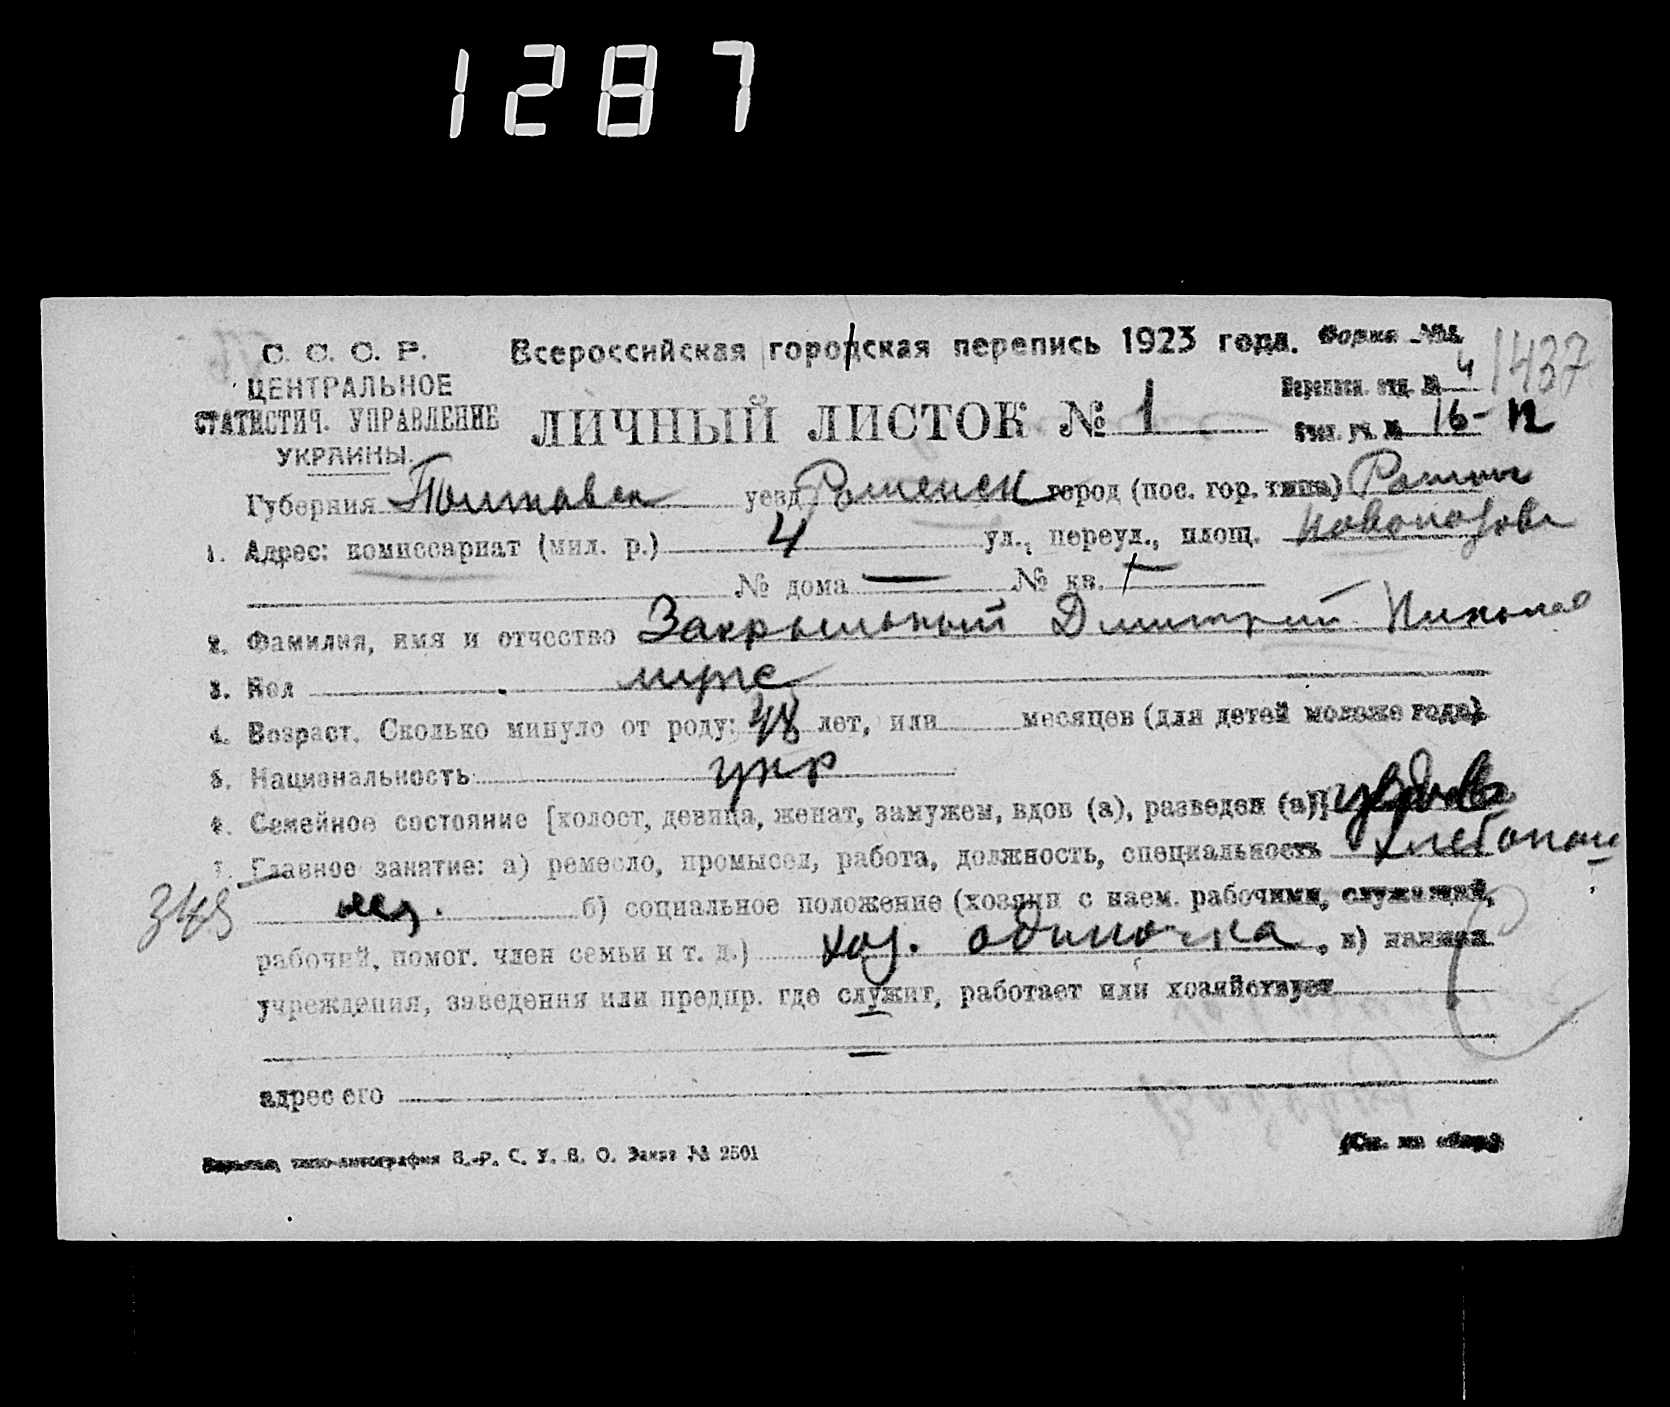 1287
С. С. С. Р.
ЦЕНТРАЛЬНОЕ
СТАТИСТИЧ. УПРАВЛЕНИЕ
УКРАИНЫ.
Всероссийская городская перепись 1923 года. Форма №1.
1437
Переписн. отд. № 4
ЛИЧНЫЙ ЛИСТОК № 1
Счет. уч. № 16-12
Губерния Полтавск уезд Роменск город (пос. гор. типа) Ромны
1. Адрес: комиссариат (мил. р.) 4 ул., переул., площ.
№ дома — № кв.
2. Фамилия, имя и отчество Закрыльный Дмитрий Никола
3. Пол муже
4. Возраст. Сколько минуло от роду: 48 лет, или месяцев (для детей моложе года)
5. Национальность укр
6. Семейное состояние [холост, девица, женат, замужем, вдов (а), разведен (а)]
7. Главное занятие: а) ремесло, промысел, работа, должность, специальность хлебопаш
348 б) социальное положение (хозяин с наем. рабочими, служащий,
рабочий, помог. член семьи и т. д.) хоз. одиночка, в) назван.
учреждения, заведения или предпр. где служит, работает или хозяйствует
—
адрес его
типо-литография В.-Р. С. У. В. О. Заказ № 2501
(См. на обор.)